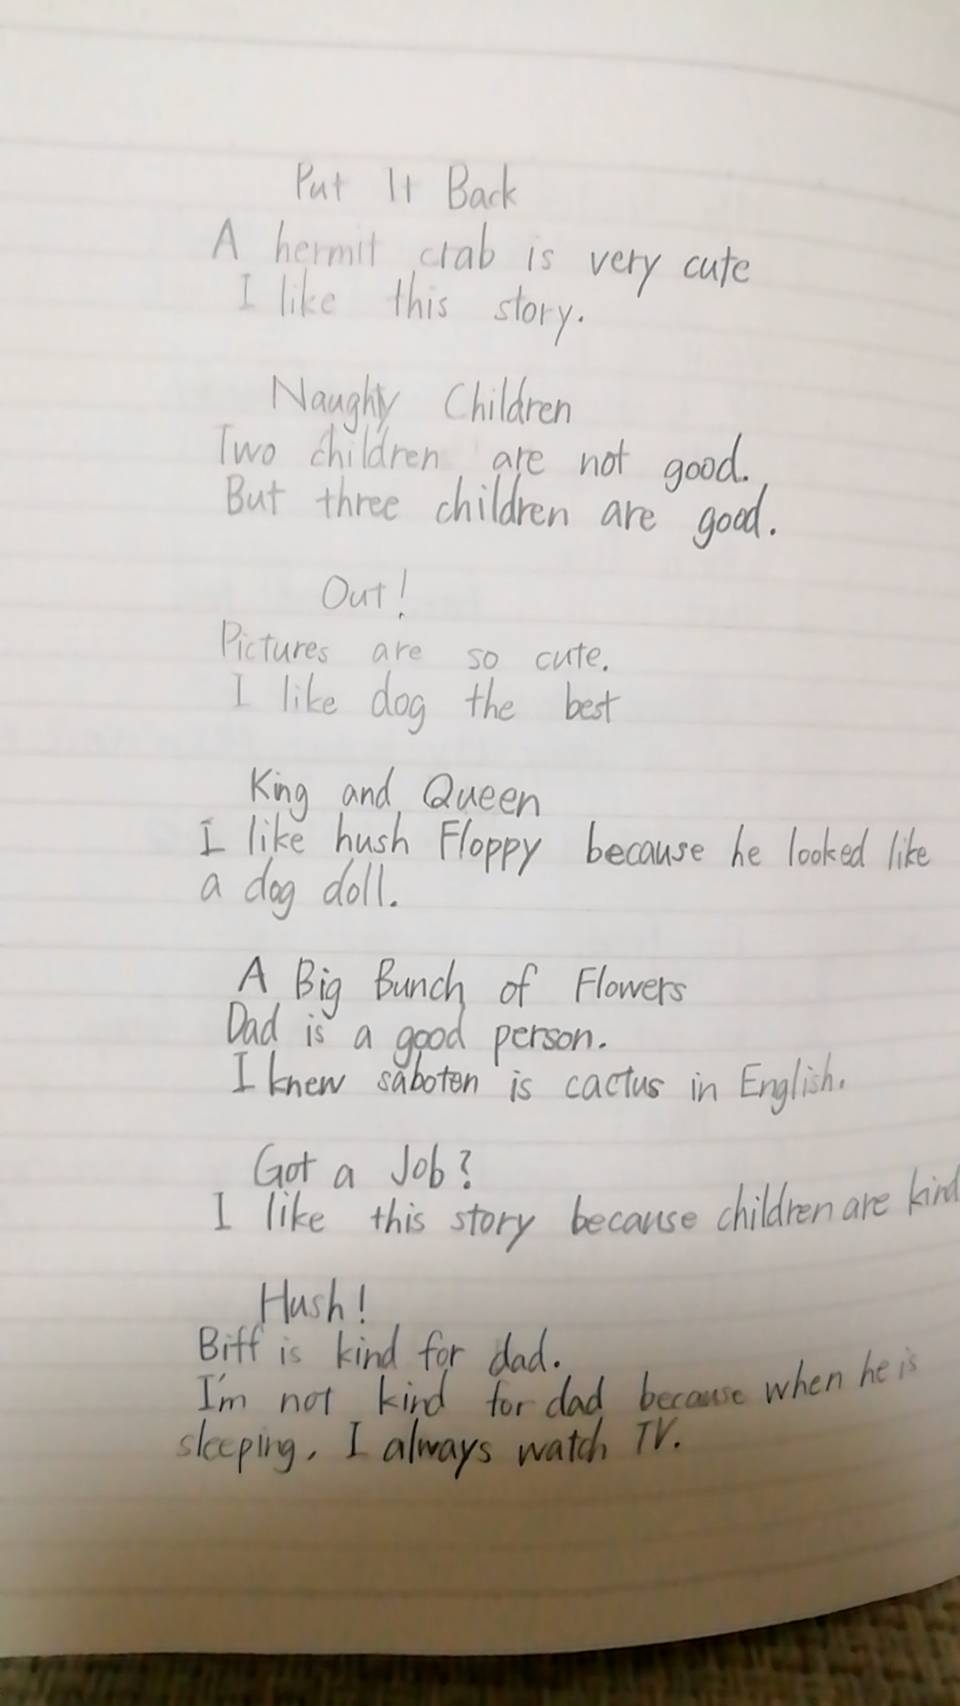 Put It Back
A hermit crab is very cute
I like this story.
Naughty Children
Two children are not good.
But three children are good.
Out!
Pictures are so cute.
I like dog the best
King and Queen
I like hush Floppy because he looked like
a dog doll.
A Big Bunch of Flowers
Dad is a good person.
I knew saboten is cactus in English.
Got a Job?
I like this story because children are kind
Hush!
Biff is kind for dad.
I'm not kind for dad because when he is
sleeping, I always watch TV.